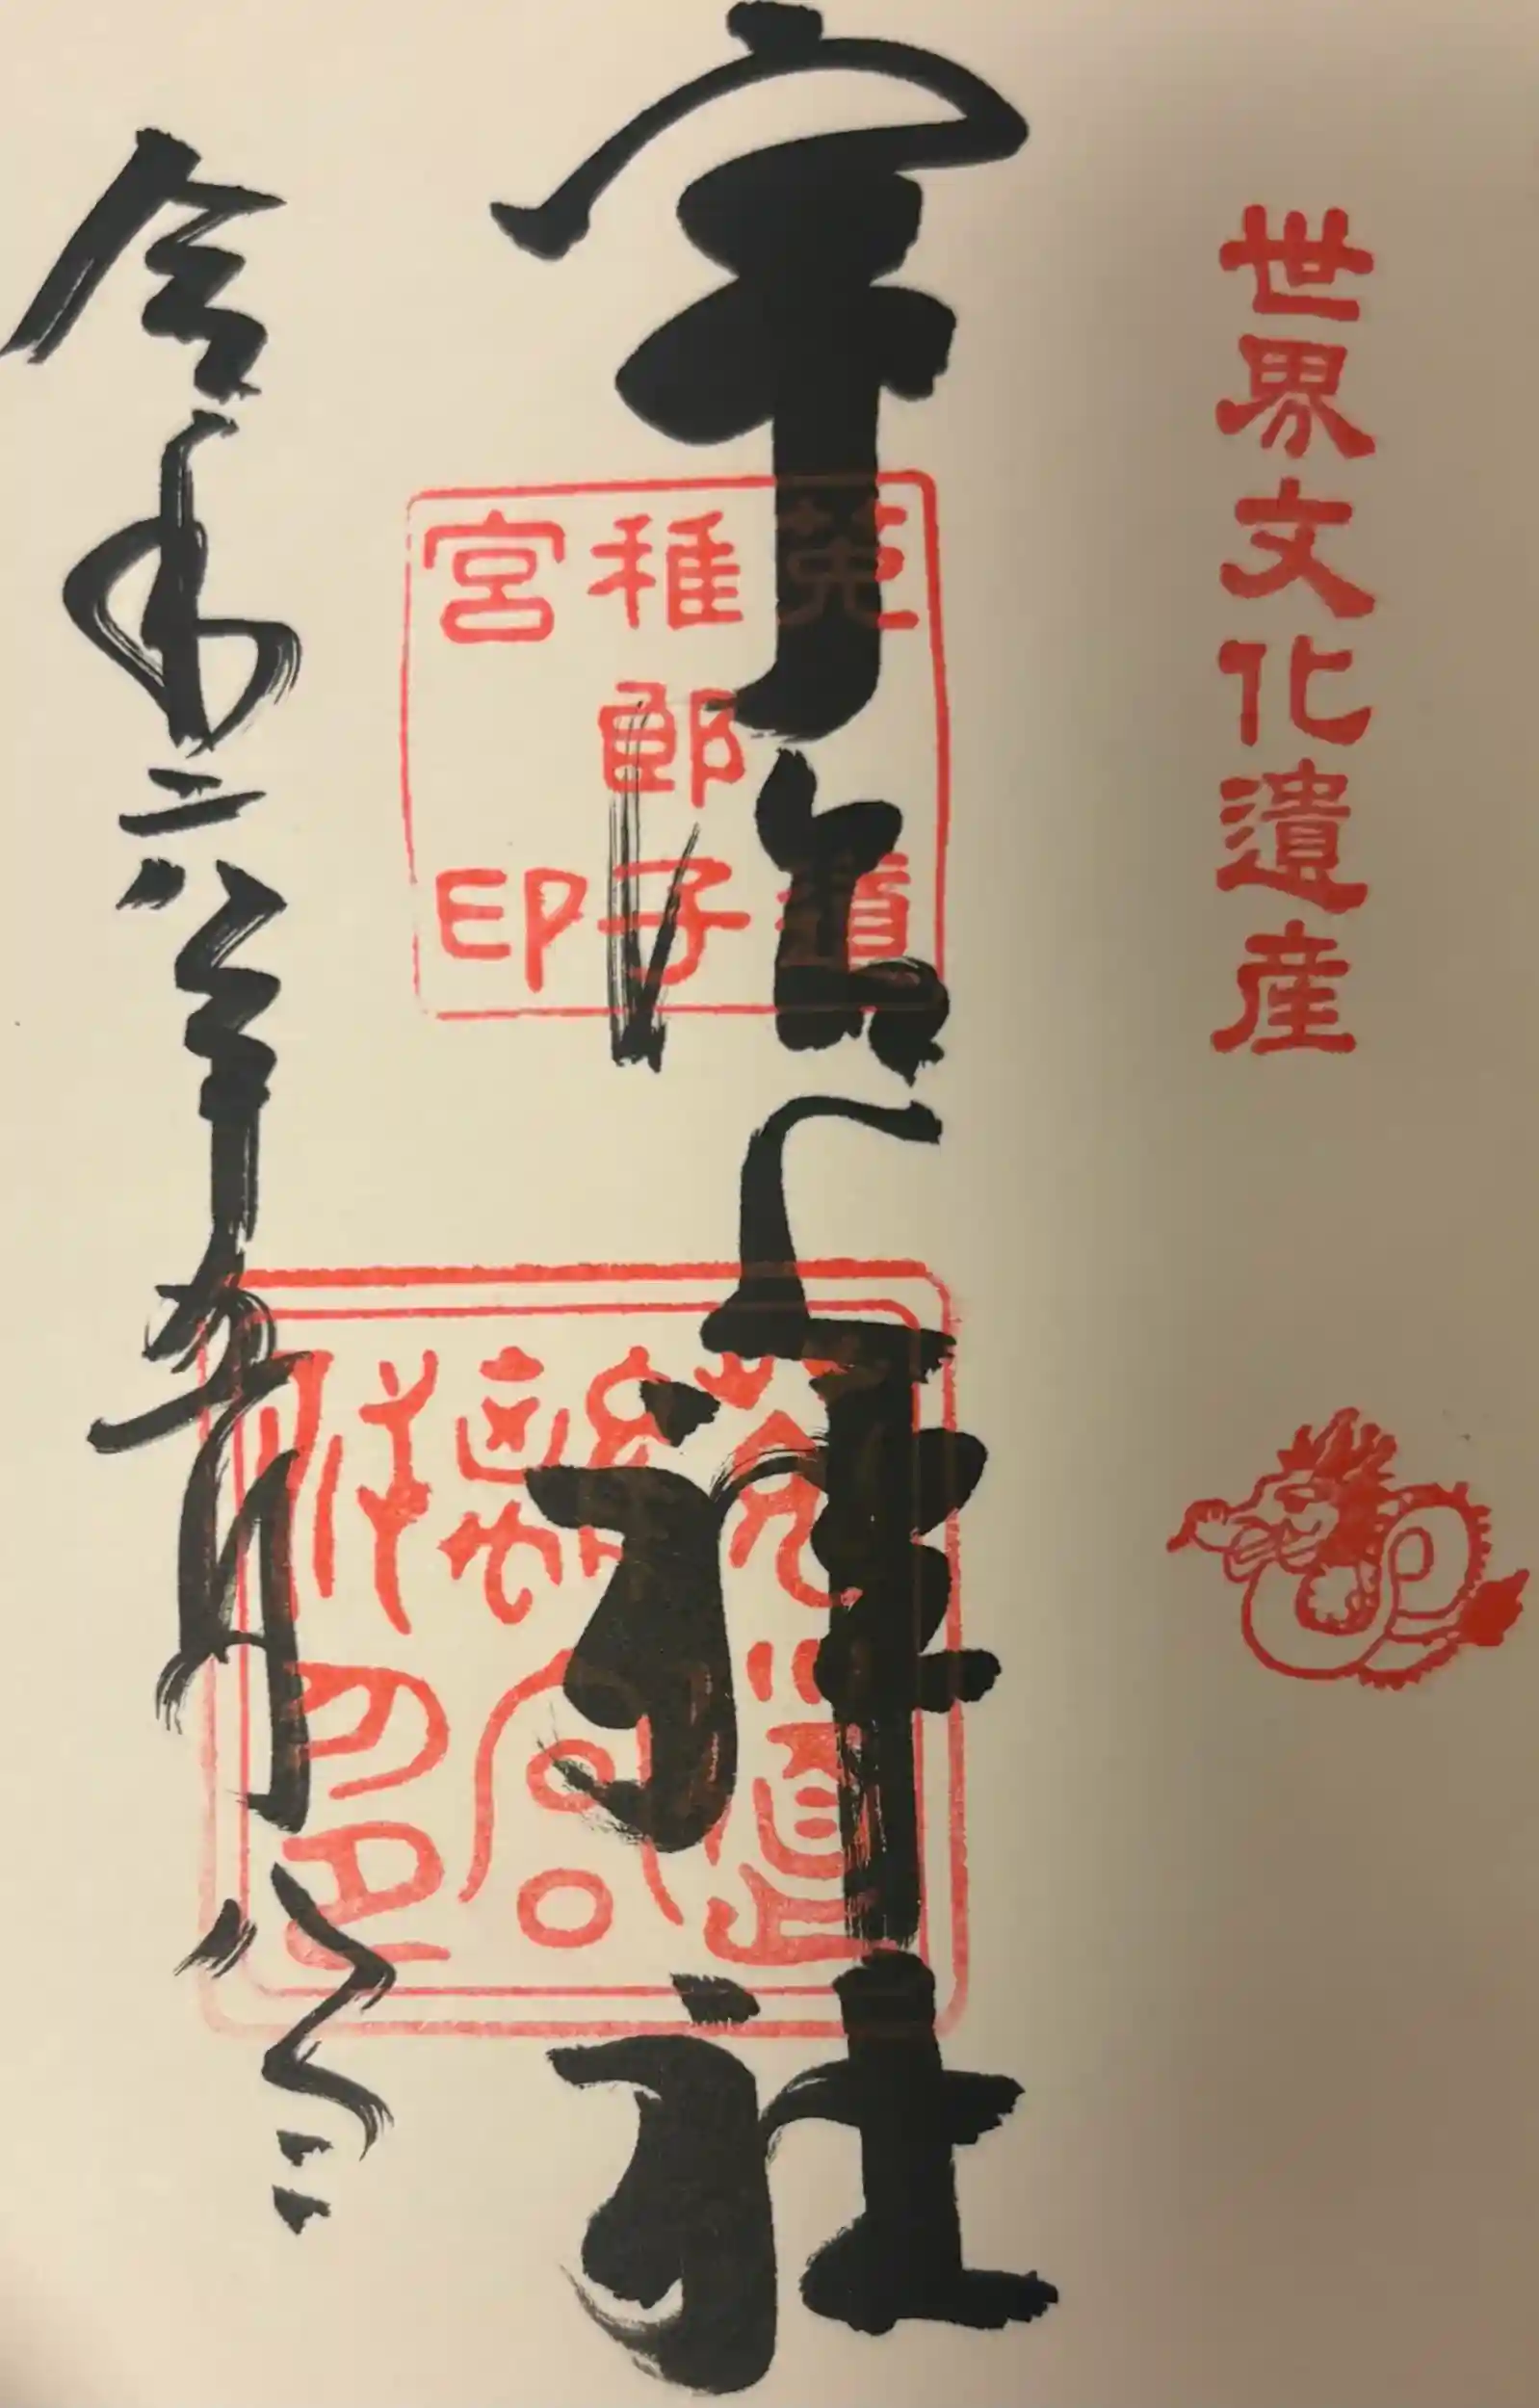 世界文化遺産
宇治上神社
莬道
稚郎子
宮印
令和六年五月八日